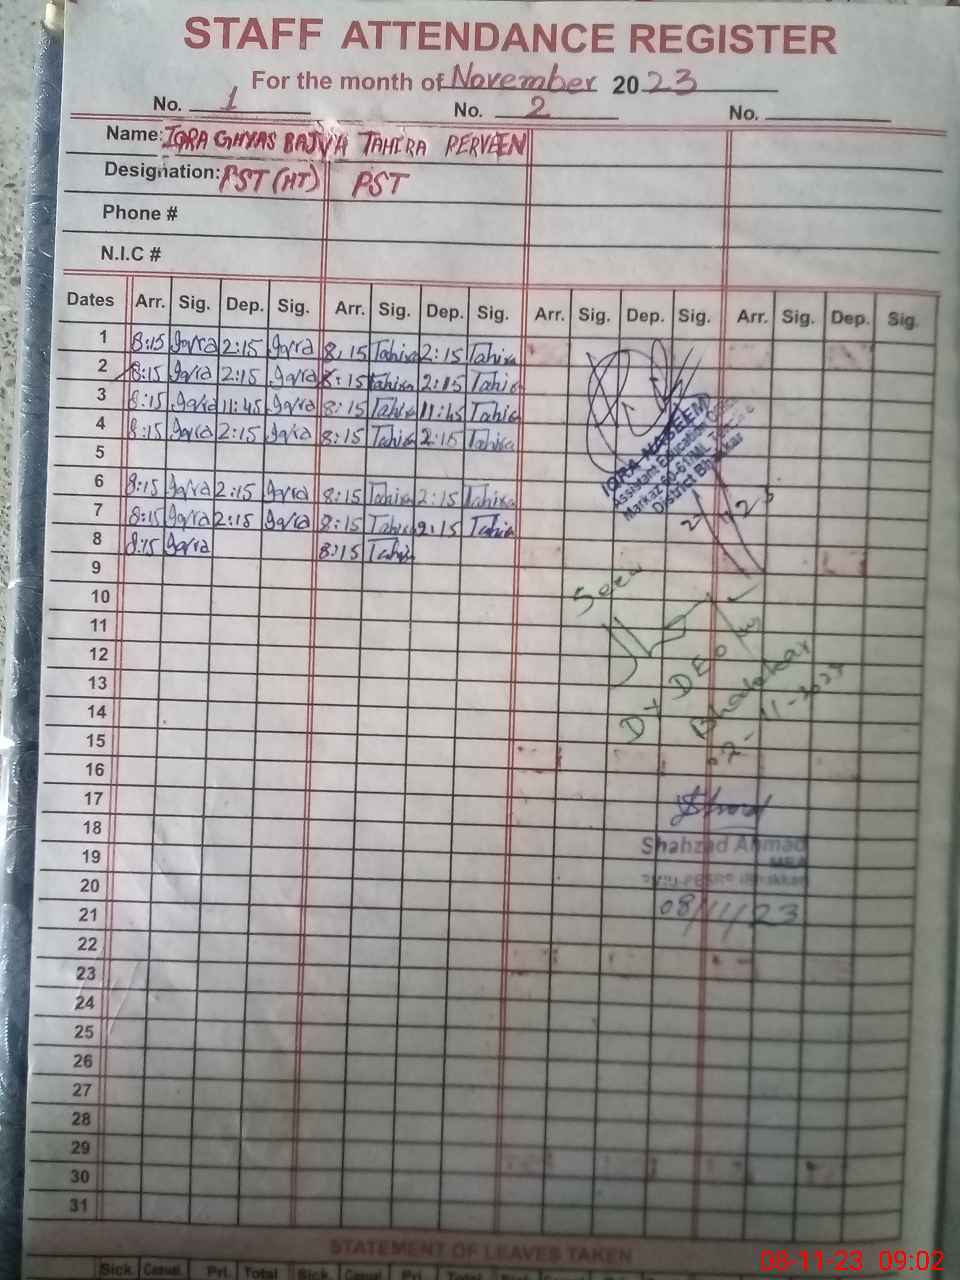 STAFF ATTENDANCE REGISTER
For the month of November 2023
No. 1 No. 2 No.
Name: IQRA GHYAS BAJVA TAHIRA PERVEEN
Designation: PST (HT) PST
Phone #
N.I.C #
Dates Arr. Sig. Dep. Sig. Arr. Sig. Dep. Sig. Arr. Sig. Dep. Sig. Arr. Sig. Dep. Sig.
1 8:15 Iqra 2:15 Iqra 8:15 Tahira 2:15 Tahira
2 8:15 Iqra 2:15 Iqra 8:15 Tahira 2:15 Tahira
3 8:15 Iqra 11:45 Iqra 8:15 Tahira 11:45 Tahira
4 8:15 Iqra 2:15 Iqra 8:15 Tahira 2:15 Tahira
5
6 8:15 Iqra 2:15 Iqra 8:15 Tahira 2:15 Tahira
7 8:15 Iqra 2:15 Iqra 8:15 Tahira 2:15 Tahira
8 8:15 Iqra 8:15 Tahira
9
10
11
12
13
14
15
16
17
18
19
20
21
22
23
24
25
26
27
28
29
30
31
IQRA NASEEM
Assistant Education
Markaz
District Bhakkar
Seen
DY DEO
Bhakkar
02-11-2023
Shahzad Ahmad
MEA
08/11/23
STATEMENT OF LEAVES TAKEN
Sick Casual Prl. Total Sick. Casual Prl. Total
08-11-23 09:02